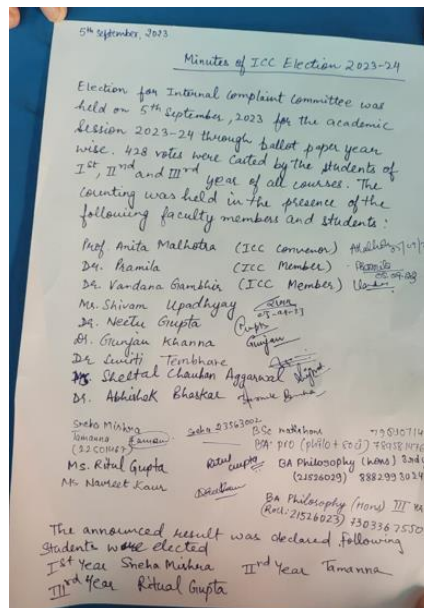 5th September, 2023
Minutes of ICC Election 2023-24
Election for Internal Complaint Committee was
held on 5th September, 2023 for the academic
Session 2023-24 through ballot paper year
wise. 428 votes were casted by the students of
Ist, IInd and IIIrd year of all courses. The
counting was held in the presence of the
following faculty members and students:
Prof. Anita Malhotra (ICC Convenor)
Dr. Pramila (ICC Member) Pramila
Dr. Vandana Gambhir (ICC Member)
Mr. Shivam Upadhyay
05-09-23
Dr. Neetu Gupta Gupta
Dr. Gunjan Khanna Gunjan
Dr. Swati Tembhare
Ms Sheetal Chauhan Aggarwal
Dr. Abhishek Bhaskar
Sneha Mishra Sneha 23563002 BSc
Tamanna BA
Ms. Ritul Gupta Ritul Gupta BA Philosophy (Hons)
(21526029) 8882993024
Ms Navreet Kaur
BA Philosophy (Hons) III
(Roll: 21526023) 7303367550
The announced result was declared following
Students were elected
Ist Year Sneha Mishra IInd Year Tamanna
IIIrd Year Ritual Gupta